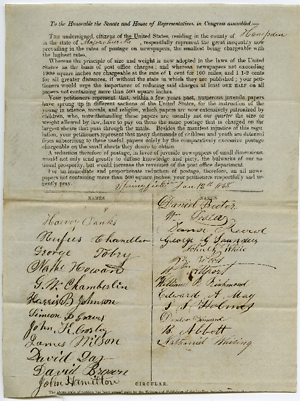 To the Honorable the Senate and House of Representatives, in Congress assembled:—
The undersigned, citizens of the United States, residing in the county of Hampden
in the state of Massachusetts, respectfully represent the great inequality now
prevailing in the rates of postage on newspapers, the smallest being chargeable with
the highest rates.
Whereas the principle of size and weight is now adopted in the laws of the United
States as the basis of post office charge; and whereas newspapers not exceeding
1900 square inches are chargeable at the rate of 1 cent for 100 miles, and 1 1-2 cents
for all greater distances, if without the state in which they are published; your peti-
tioners would urge the importance of reducing said charges at least one half on all
papers not containing more than 500 square inches.
Your petitioners represent that, within a few years past, numerous juvenile papers
have sprung up in different sections of the United States, for the instruction of the
young in science, morals, and religion, which papers are now extensively patronized by
children, who, notwithstanding these papers are usually not one quarter the size or
weight allowed by law, have to pay on them the same postage that is charged on the
largest sheets that pass through the mails. Besides the manifest injustice of this regu-
lation, your petitioners represent that many thousands of children and youth are debarred
from subscribing to these useful papers solely by the comparatively excessive postage
chargeable on the small sheets they desire to obtain.
A reduction therefore of postage, in favor of juvenile newspapers of small dimensions
would not only tend greatly to diffuse knowledge and piety, the bulwarks of our na-
tional prosperity, but would increase the revenues of the post office department.
For an immediate and proportionate reduction of postage, therefore, on all news
papers not containing more than 500 square inches, your petitioners respectfully and ur-
gently pray.
Springfield Jan. 12th 1848
NAMES
Harvey Danks
Rufus Chandler
George Tobey
Wake Howard
G. W. Chamberlin
Harris B Johnson
Simeon S Eaves
John K. Cooley
James Wilson
David Day
David Brown
John Hamilton
NAMES
David Bestor
George G Saunders
William B. Richmond
Edward A. May
B Abbott
Nathaniel Whiting
CIRCULAR.